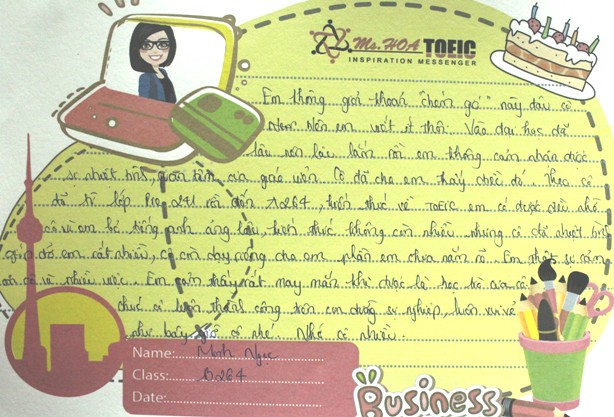 Ms.HOA TOEIC
INSPIRATION MESSENGER
Em không giỏi khoản "chém gió" này đâu cô
nên em viết ít thôi. Vào đại học đã
lâu nên lâu lắm rồi em không cảm nhận được
sự nhiệt tình, quan tâm của giáo viên. Cô đã cho em thấy điều đó. Theo cô
đã từ lớp Pre 241 rồi đến A264, kiến thức về TOEIC em có được đều nhờ
cô vì em bị tiếng anh lâu, kiến thức không còn nhiều nhưng cô đã nhiệt tình
giúp đỡ em rất nhiều, cô còn dạy nóng cho em phần em chưa nắm rõ. Em thật sự cảm
ơn cô về nhiều việc. Em cảm thấy rất may mắn khi được là học trò của cô.
chúc cô luôn thành công trên con đường sự nghiệp, luôn vui vẻ
như bây giờ cô nhé. Nhớ cô nhiều.
Name: Minh Ngọc
Class: B264
Date:
Business